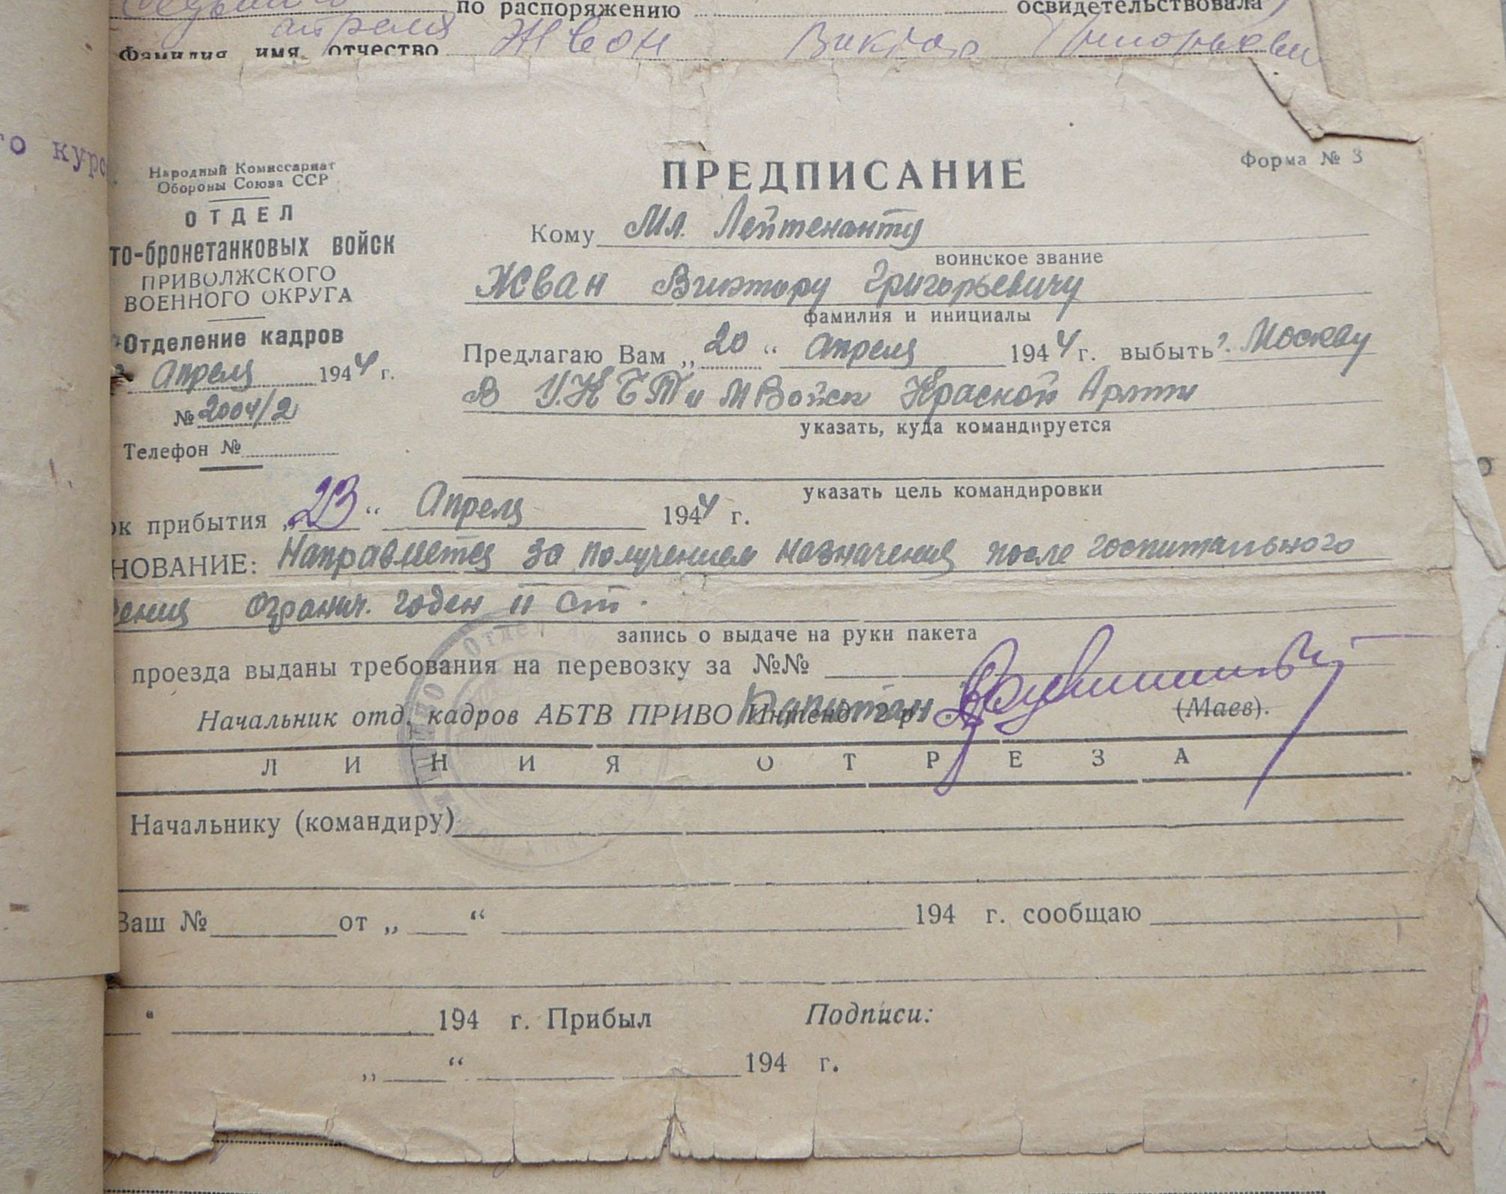 по распоряжению освидетельствовала
апреля
Фамилия имя отчество Жван Виктор Григорьевич
го курс
Народный Комиссариат
Обороны Союза ССР
ОТДЕЛ
то-бронетанковых войск
ПРИВОЛЖСКОГО
ВОЕННОГО ОКРУГА
Отделение кадров
Апреля 1944 г.
№ 2004/2
Телефон №
Форма № 3
ПРЕДПИСАНИЕ
Кому Мл. Лейтенанту
воинское звание
Жван Виктору Григорьевичу
фамилия и инициалы
Предлагаю Вам „20“ Апреля 1944 г. выбыть г. Москву
в УК БТ и М Войск Красной Армии
указать, куда командируется
указать цель командировки
ок прибытия „23“ Апреля 1944 г.
НОВАНИЕ: Направляется за получением назначения после госпитального
чения огранич. годен II ст.
запись о выдаче на руки пакета
проезда выданы требования на перевозку за №№
Начальник отд. кадров АБТВ ПРИВО Интенд. 2 р. Капитан (Маев).
ЛИНИЯ ОТРЕЗА
Начальнику (командиру)
Ваш № от „ “ 194 г. сообщаю
“ 194 г. Прибыл Подписи:
„ “ 194 г.